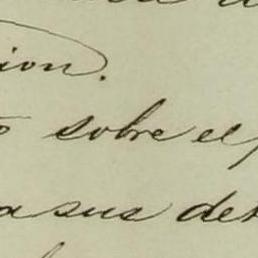 ion.
o sobre el p
a sus det